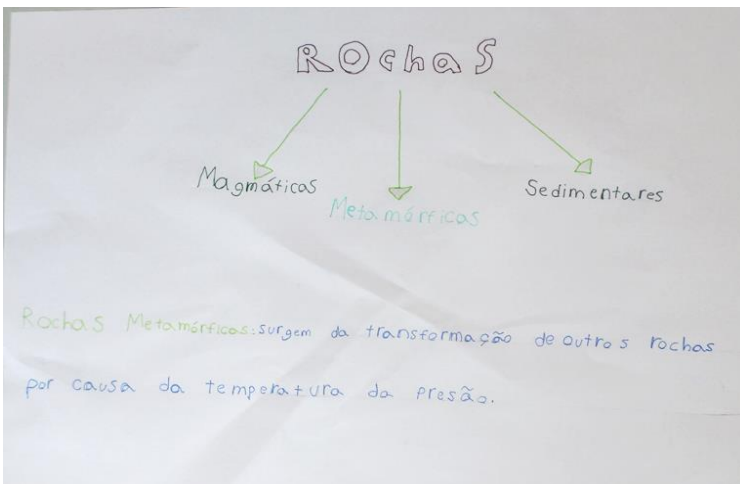 ROchaS
Magmáticas
Metamórficas
Sedimentares
Rochas Metamórficas: surgem da transformação de outros rochas
por causa da temperatura da presão.